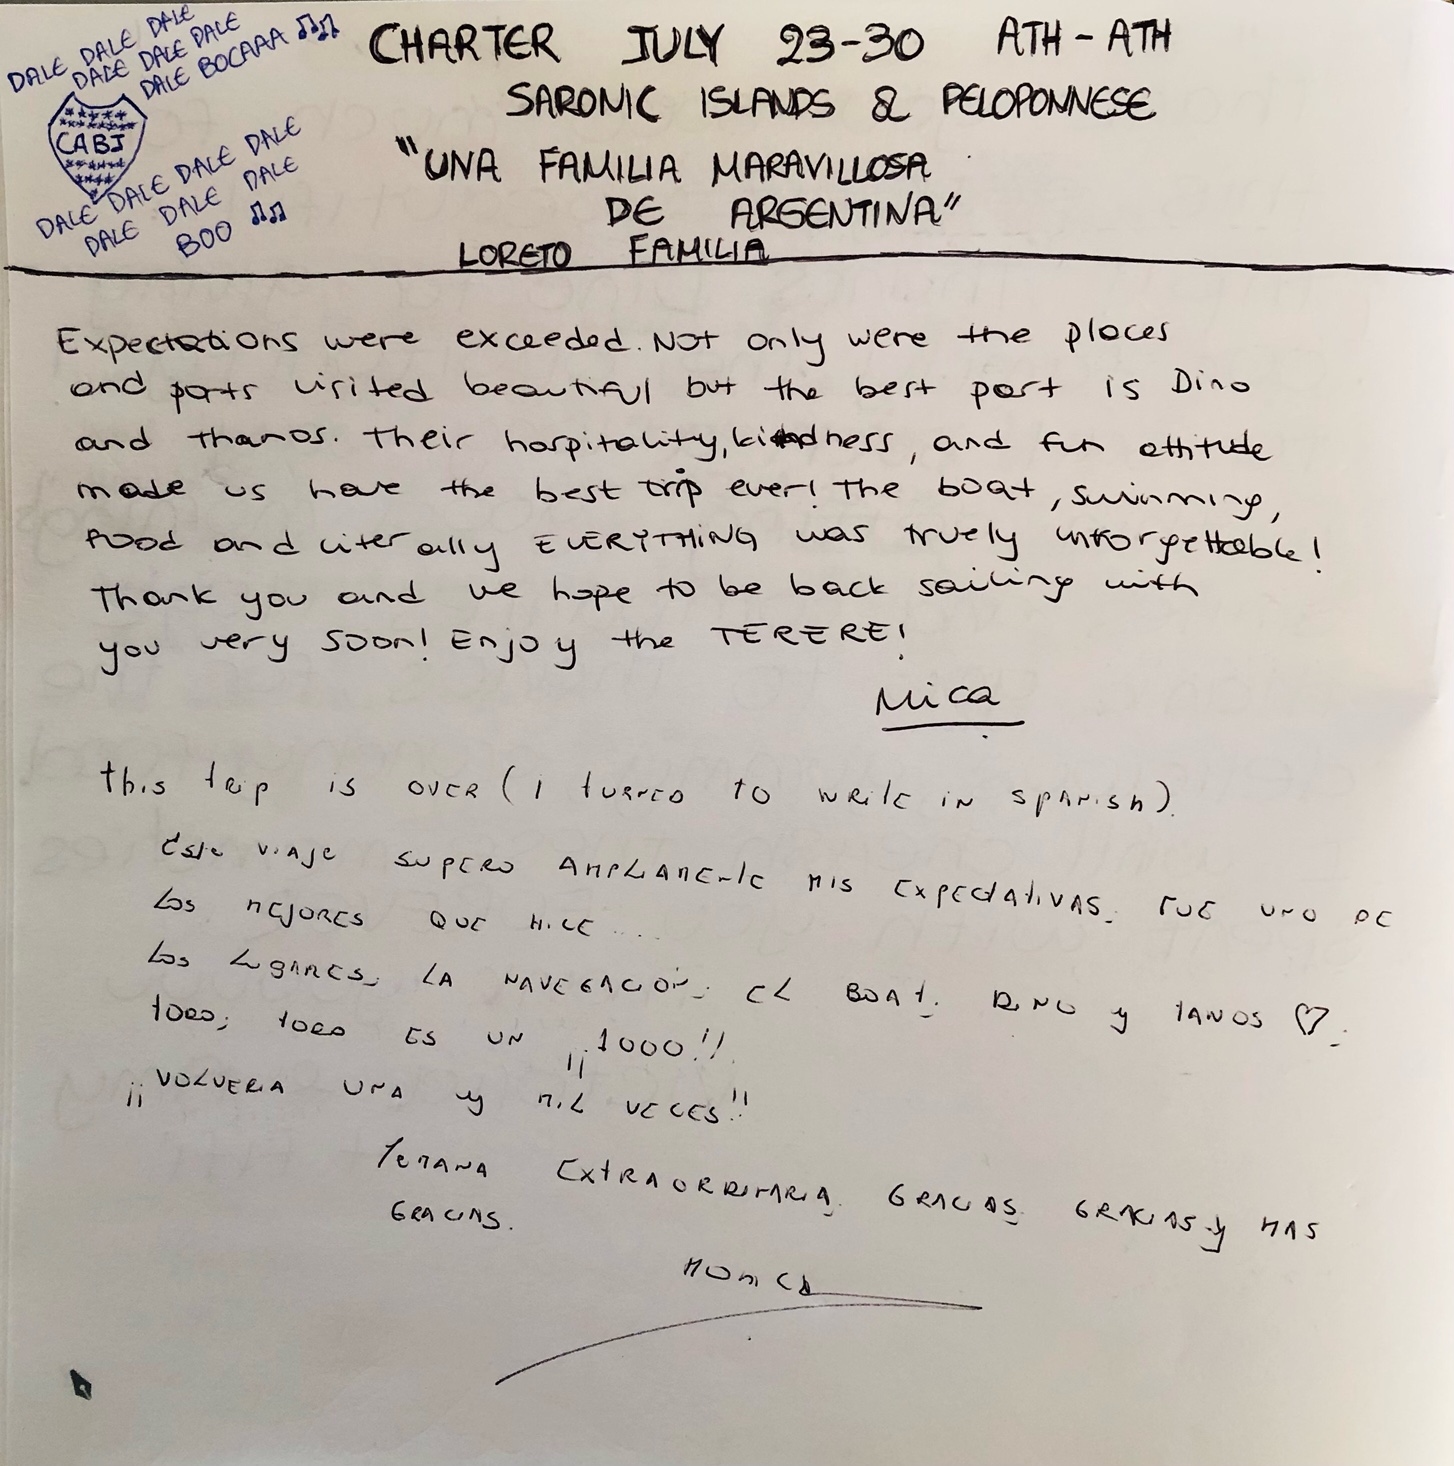 DALE DALE DALE
DALE DALE DALE
DALE BOCAAA
CABJ
DALE DALE DALE DALE
DALE DALE DALE
BOO
CHARTER JULY 23-30 ATH - ATH
SARONIC ISLANDS & PELOPONNESE
"UNA FAMILIA MARAVILLOSA
DE ARGENTINA"
LORETO FAMILIA
Expectations were exceeded. Not only were the places
and ports visited beautiful but the best part is Dino
and Thanos. Their hospitality, kindness, and fun attitude
made us have the best trip ever! The boat, swimming,
food and literally EVERYTHING was truely unforgettable!
Thank you and we hope to be back sailing with
you very soon! Enjoy the TERERE!
Mica
this trip is over (I turned to write in spanish).
Este viaje supero ampliamente mis expectativas. Fue uno de
los mejores que hice....
Los lugares, la navegación, el boat. Dino y Tanos ♡.
todo, todo es un ¡¡1000!!
¡¡Volveria una y mil veces!!
Semana extraordinaria. Gracias. Gracias y mas
gracias.
Monica